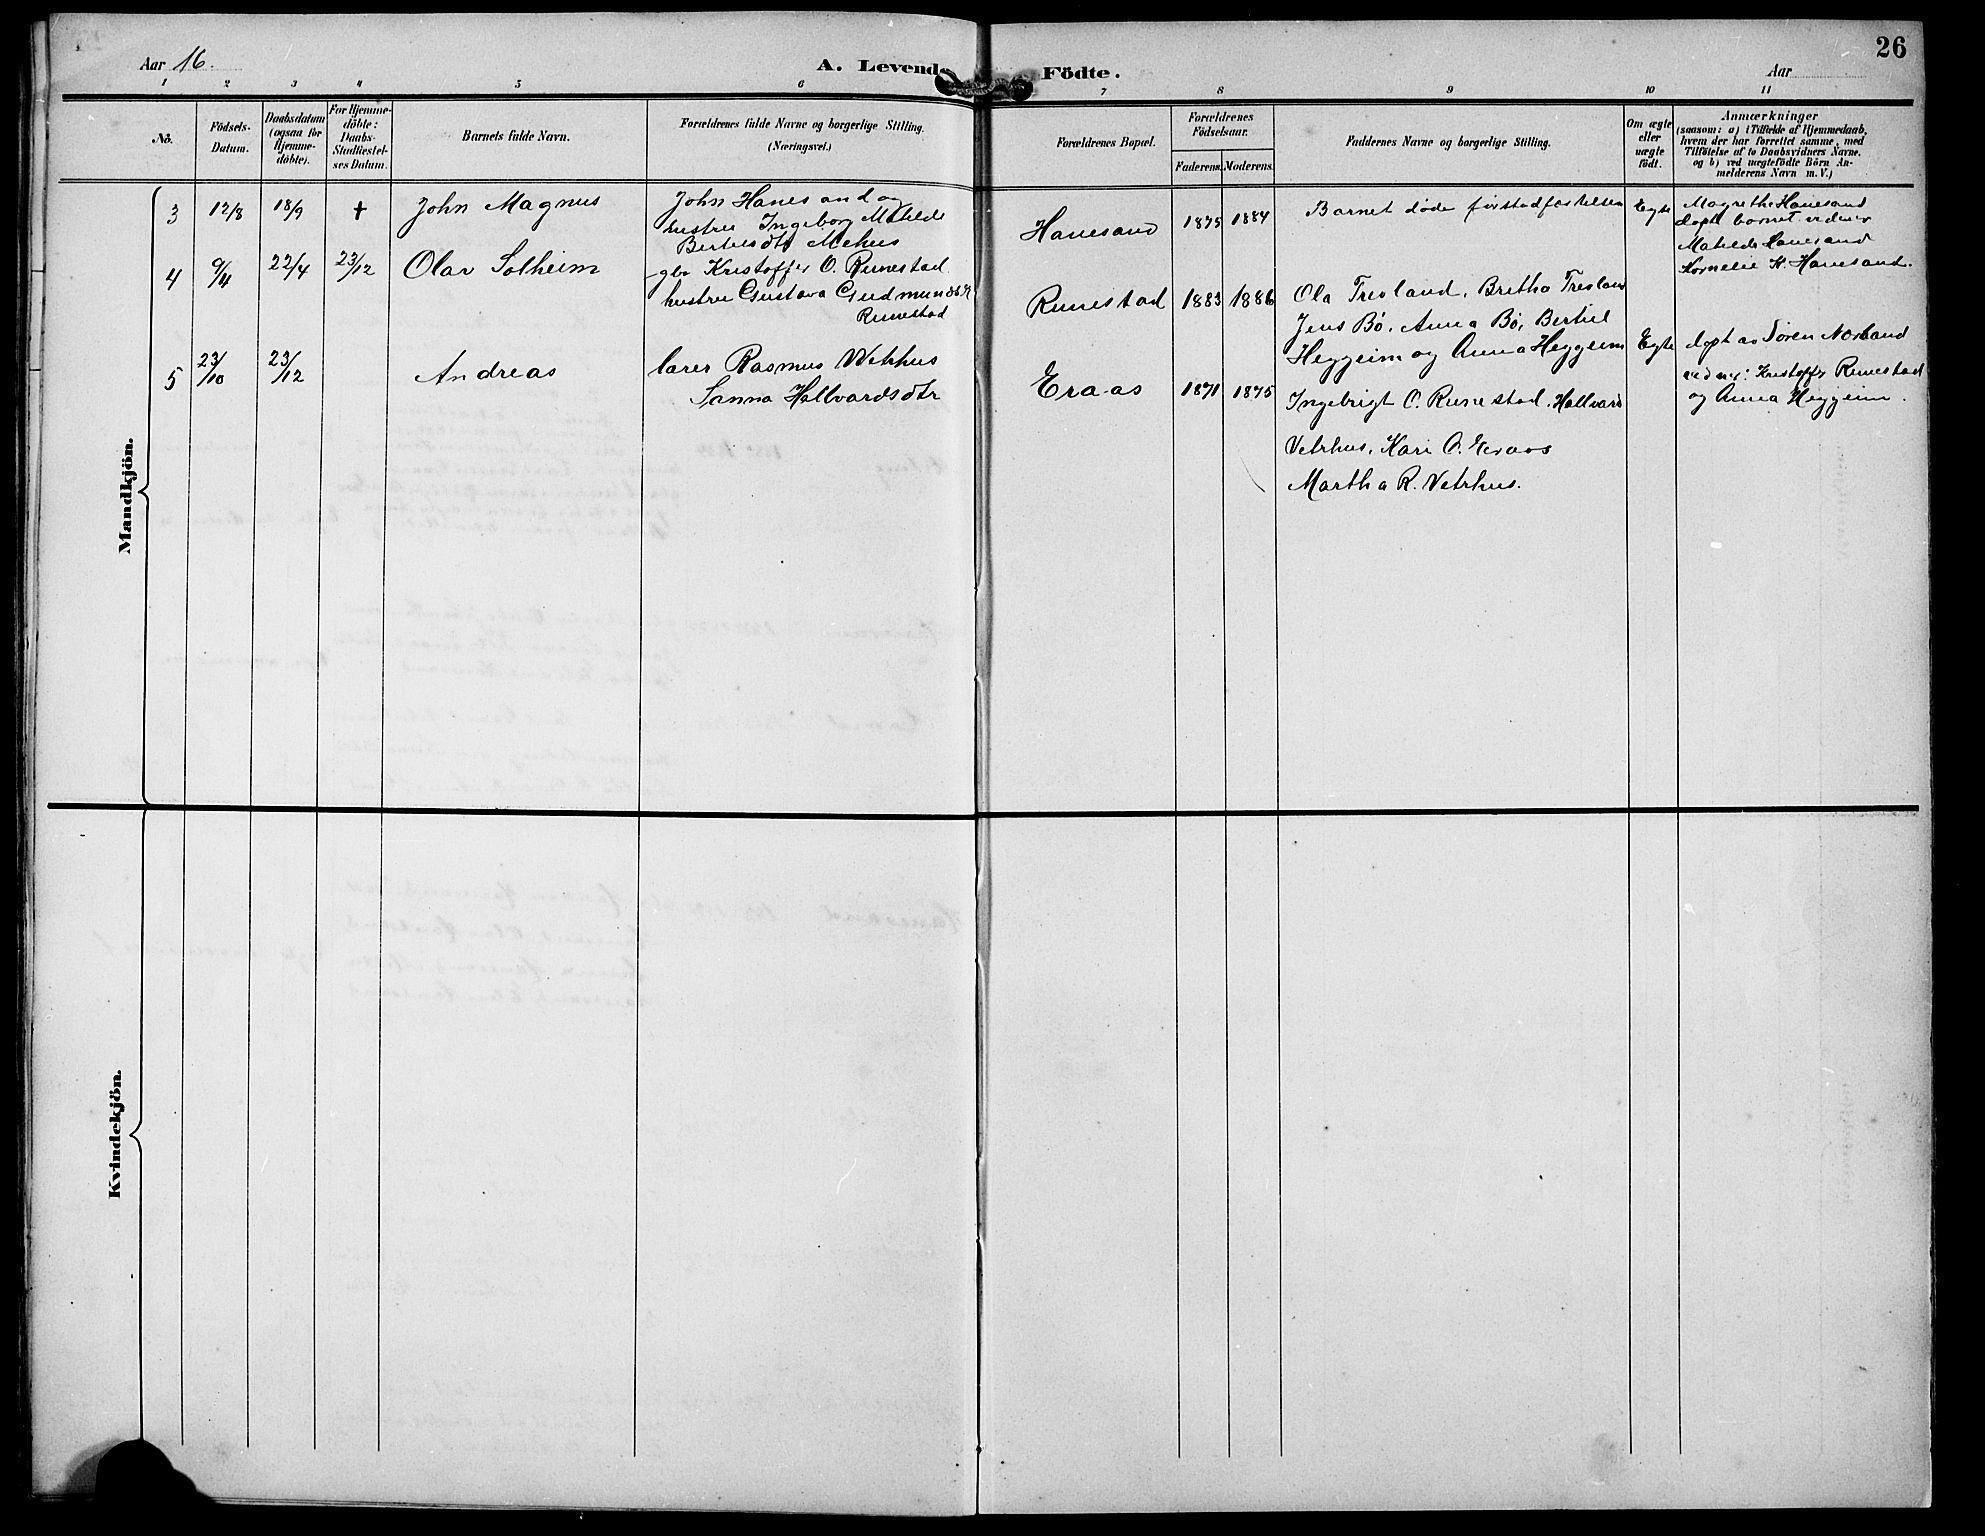 Aar 16.
A. Levende Födte.
Aar
26
1 2 3 4 5 6 7 8 9 10 11
No.
Födsels-Datum.
Daabsdatum (ogsaa for Hjemme-döbte).
For Hjemme-döbte: Daabs-Stadfæstel-ses Datum.
Barnets fulde Navn.
Forældrenes fulde Navne og borgerlige Stilling.
(Næringsvei.)
Forældrenes Bopæl.
Forældrenes Födselsaar.
Faderens. Moderens.
Faddernes Navne og borgerlige Stilling.
Om ægte eller uægte födt.
Anmærkninger
(saasom: a) i Tilfælde af Hjemmedaab,
hvem der har forrettet samme, med
Tilföielse af to Daabsvidners Navne,
og b) ved uægtefödte Börn An-
melderens Navn m. V.)
Mandkjön.
3 12/8 18/9 + John Magnus
John Hanesand og
hustru Ingeborg Matilde
Bertelsdtr Mehus
Hanesand 1875 1884
Barnet døde før stadfæstelsen
Egte
Magrethe Hanesand
døpt barnet vidner
Matilde Hanesand
Kornelie K. Hanesand.
4 9/4 22/4 23/12 Olav Solheim
gbr Kristoffer O. Runestad
hustru Gustava Gudmundsdtr
Runestad
Runestad 1883 1886
Ola Tresland, Bretha Tresland
Jens Bø, Anna Bø, Bertiel
Heggeim og Anna Heggeim
Egte
døpt av Sören Norland
vidner: Kristoffer Runestad
og Anna Heggeim.
5 23/10 23/12 Andreas
lærer Rasmus Vetrhus
Sanna Hallvardsdtr
Eraas 1871 1875
Ingebrigt O. Runestad, Hallvard
Vetrhus, Kari O. Eraas
Martha R. Vetrhus.
Kvindekjön.